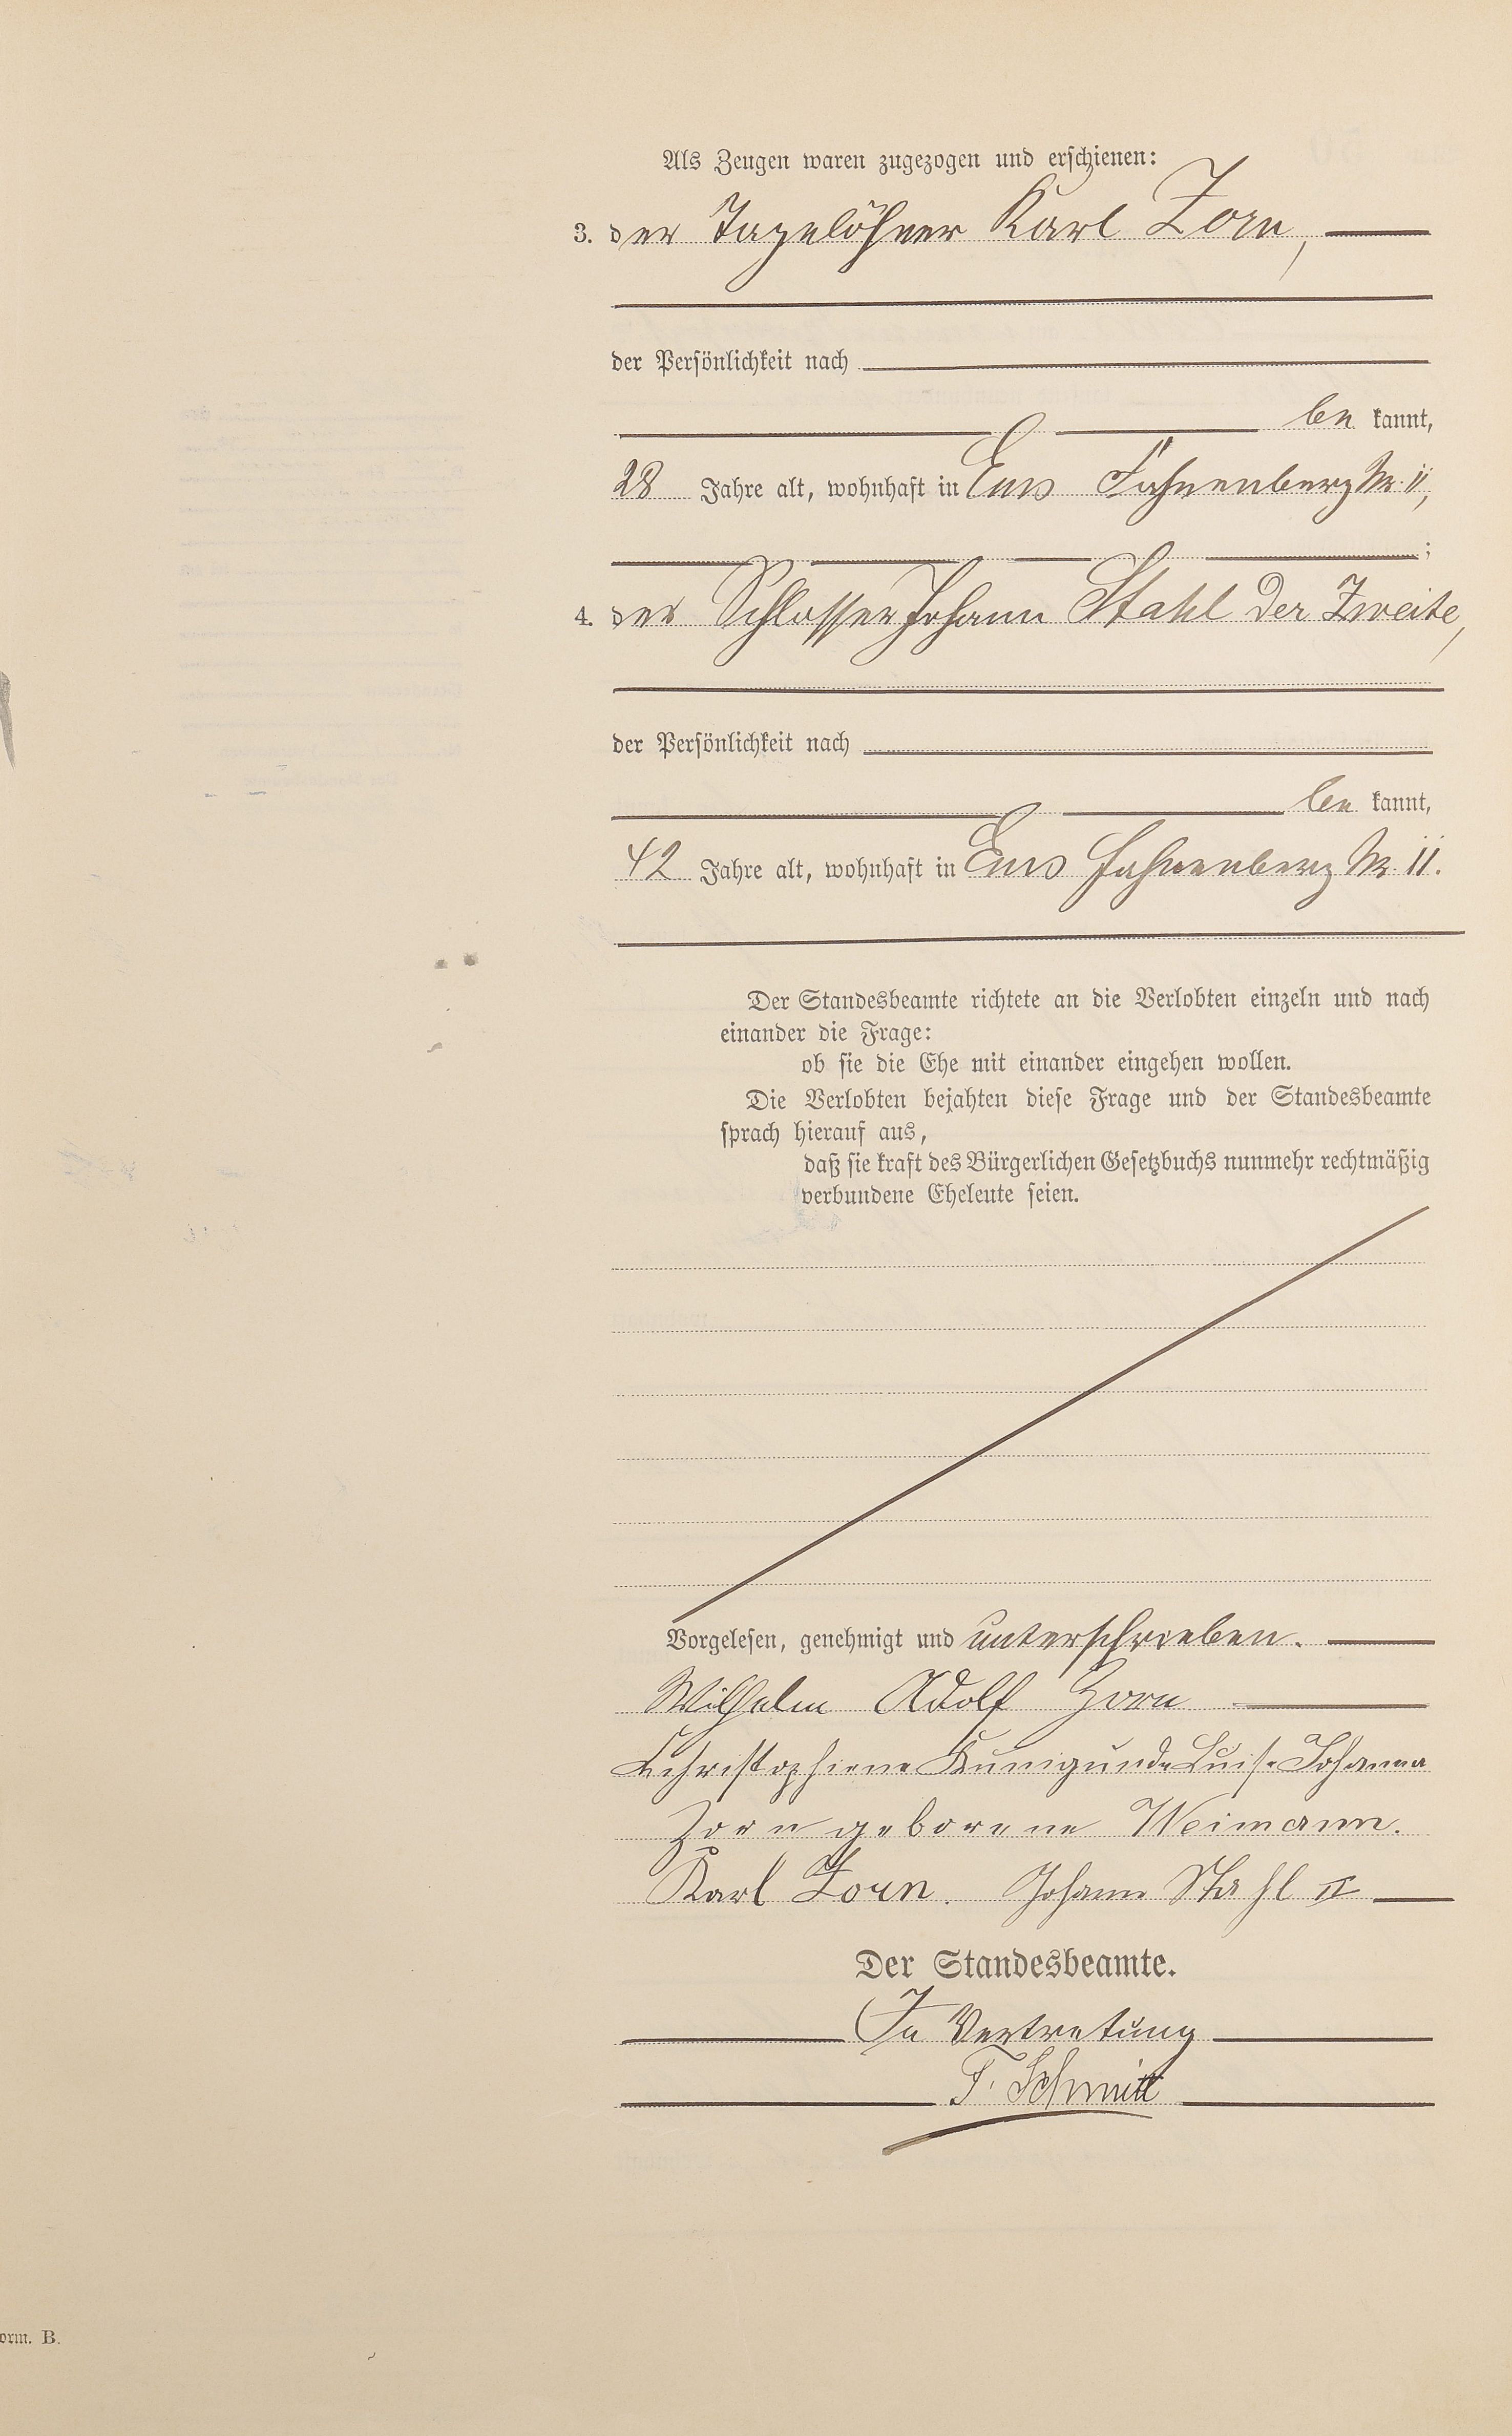 Als Zeugen waren zugezogen und erschienen:
3. der Tagelöhner Karl Zorn,
der Persönlichkeit nach
be kannt,
28 Jahre alt, wohnhaft in Ems Fahnenberg Nr. 11,
;
4. der Schlosser Johann Stahl der Zweite,
der Persönlichkeit nach
be kannt,
42 Jahre alt, wohnhaft in Ems Fahnenberg Nr. 11.
Der Standesbeamte richtete an die Verlobten einzeln und nach
einander die Frage:
ob sie die Ehe mit einander eingehen wollen.
Die Verlobten bejahten diese Frage und der Standesbeamte
sprach hierauf aus,
daß sie kraft des Bürgerlichen Gesetzbuchs nunmehr rechtmäßig
verbundene Eheleute seien.
Vorgelesen, genehmigt und unterschrieben.
Wilhelm Adolf Zorn
Christophiene Kunigunde Luise Johanna
Zorn geborene Weimann.
Karl Zorn. Johann Stahl II
Der Standesbeamte.
In Vertretung
T. Schmitt
orm. B.